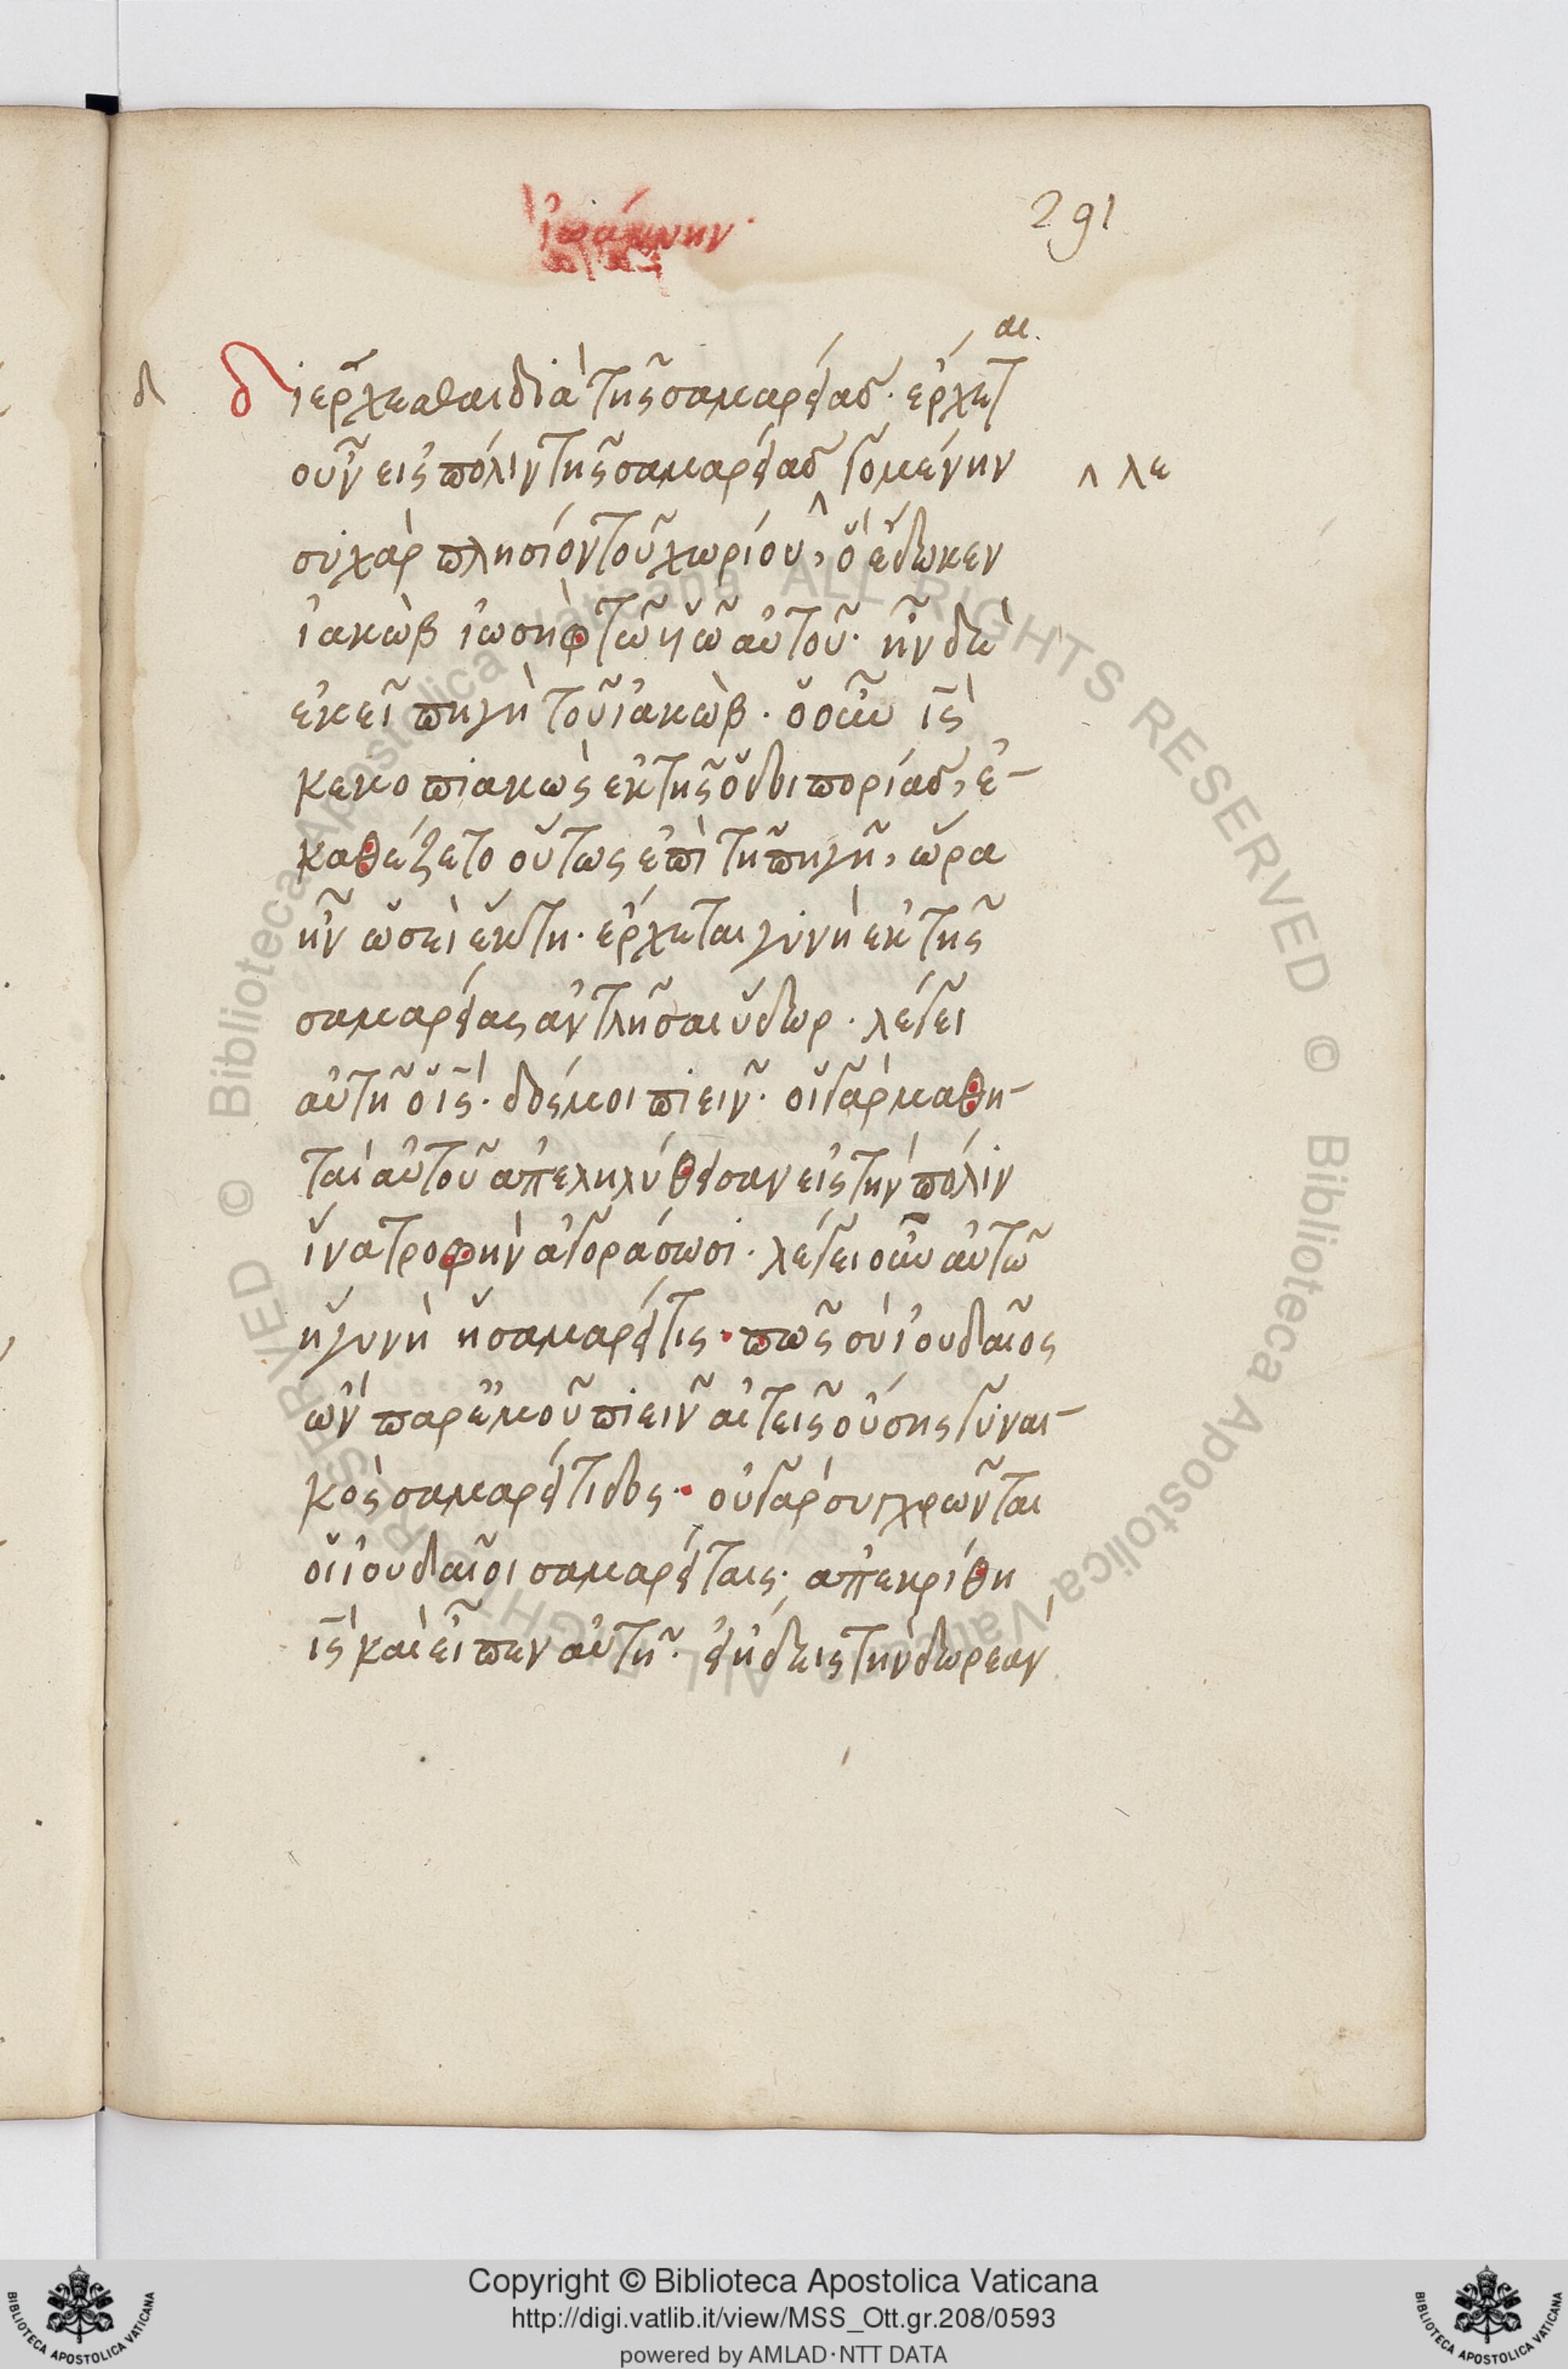 ἰωάννην·
291
δ
διερχεσθαι διὰ τῆς σαμαρείας· ἔρχεται
οὖν εἰς πόλιν τῆς σαμαρείας λεγομένην
σιχὰρ πλησίον τοῦ χωρίου, ὃ ἔδωκεν
ἰακὼβ ἰωσὴφ τῶ υἱῶ αὐτοῦ· ἦν δὲ
ἐκεῖ πηγὴ τοῦ ἰακὼβ· ὁ οὖν ις
κεκοπιακὼς ἐκ τῆς ὁδοιπορίας, ἐ-
καθέζετο οὕτως ἐπὶ τῆ πηγῆ, ὥρα
ἦν ὡσεὶ ἕκτη· ἔρχεται γυνὴ ἐκ τῆς
σαμαρείας ἀντλῆσαι ὕδωρ· λέγει
αὐτῆ ὁ ις· δός μοι πιεῖν· οἱ γὰρ μαθη-
ταὶ αὐτοῦ ἀπεληλύθεισαν εἰς τὴν πόλιν
ἵνα τροφὴν ἀγοράσωσι· λέγει οὖν αὐτῶ
ἡ γυνὴ ἡ σαμαρεῖτις· πῶς σὺ ἰουδαῖος
ὢν παρ ἐμοῦ πιεῖν αἰτεῖς οὔσης γυναι-
κὸς σαμαρείτιδος· οὐ γὰρ συγχρῶνται
οἱ ἰουδαῖοι σαμαρείταις· ἀπεκρίθη
ις καὶ εἶπεν αὐτῆ· εἰ ἤδεις τὴν δωρεὰν
Copyright © Biblioteca Apostolica Vaticana
http://digi.vatlib.it/view/MSS_Ott.gr.208/0593
powered by AMLAD·NTT DATA
BIBLIOTECA APOSTOLICA VATICANA
BIBLIOTECA APOSTOLICA VATICANA